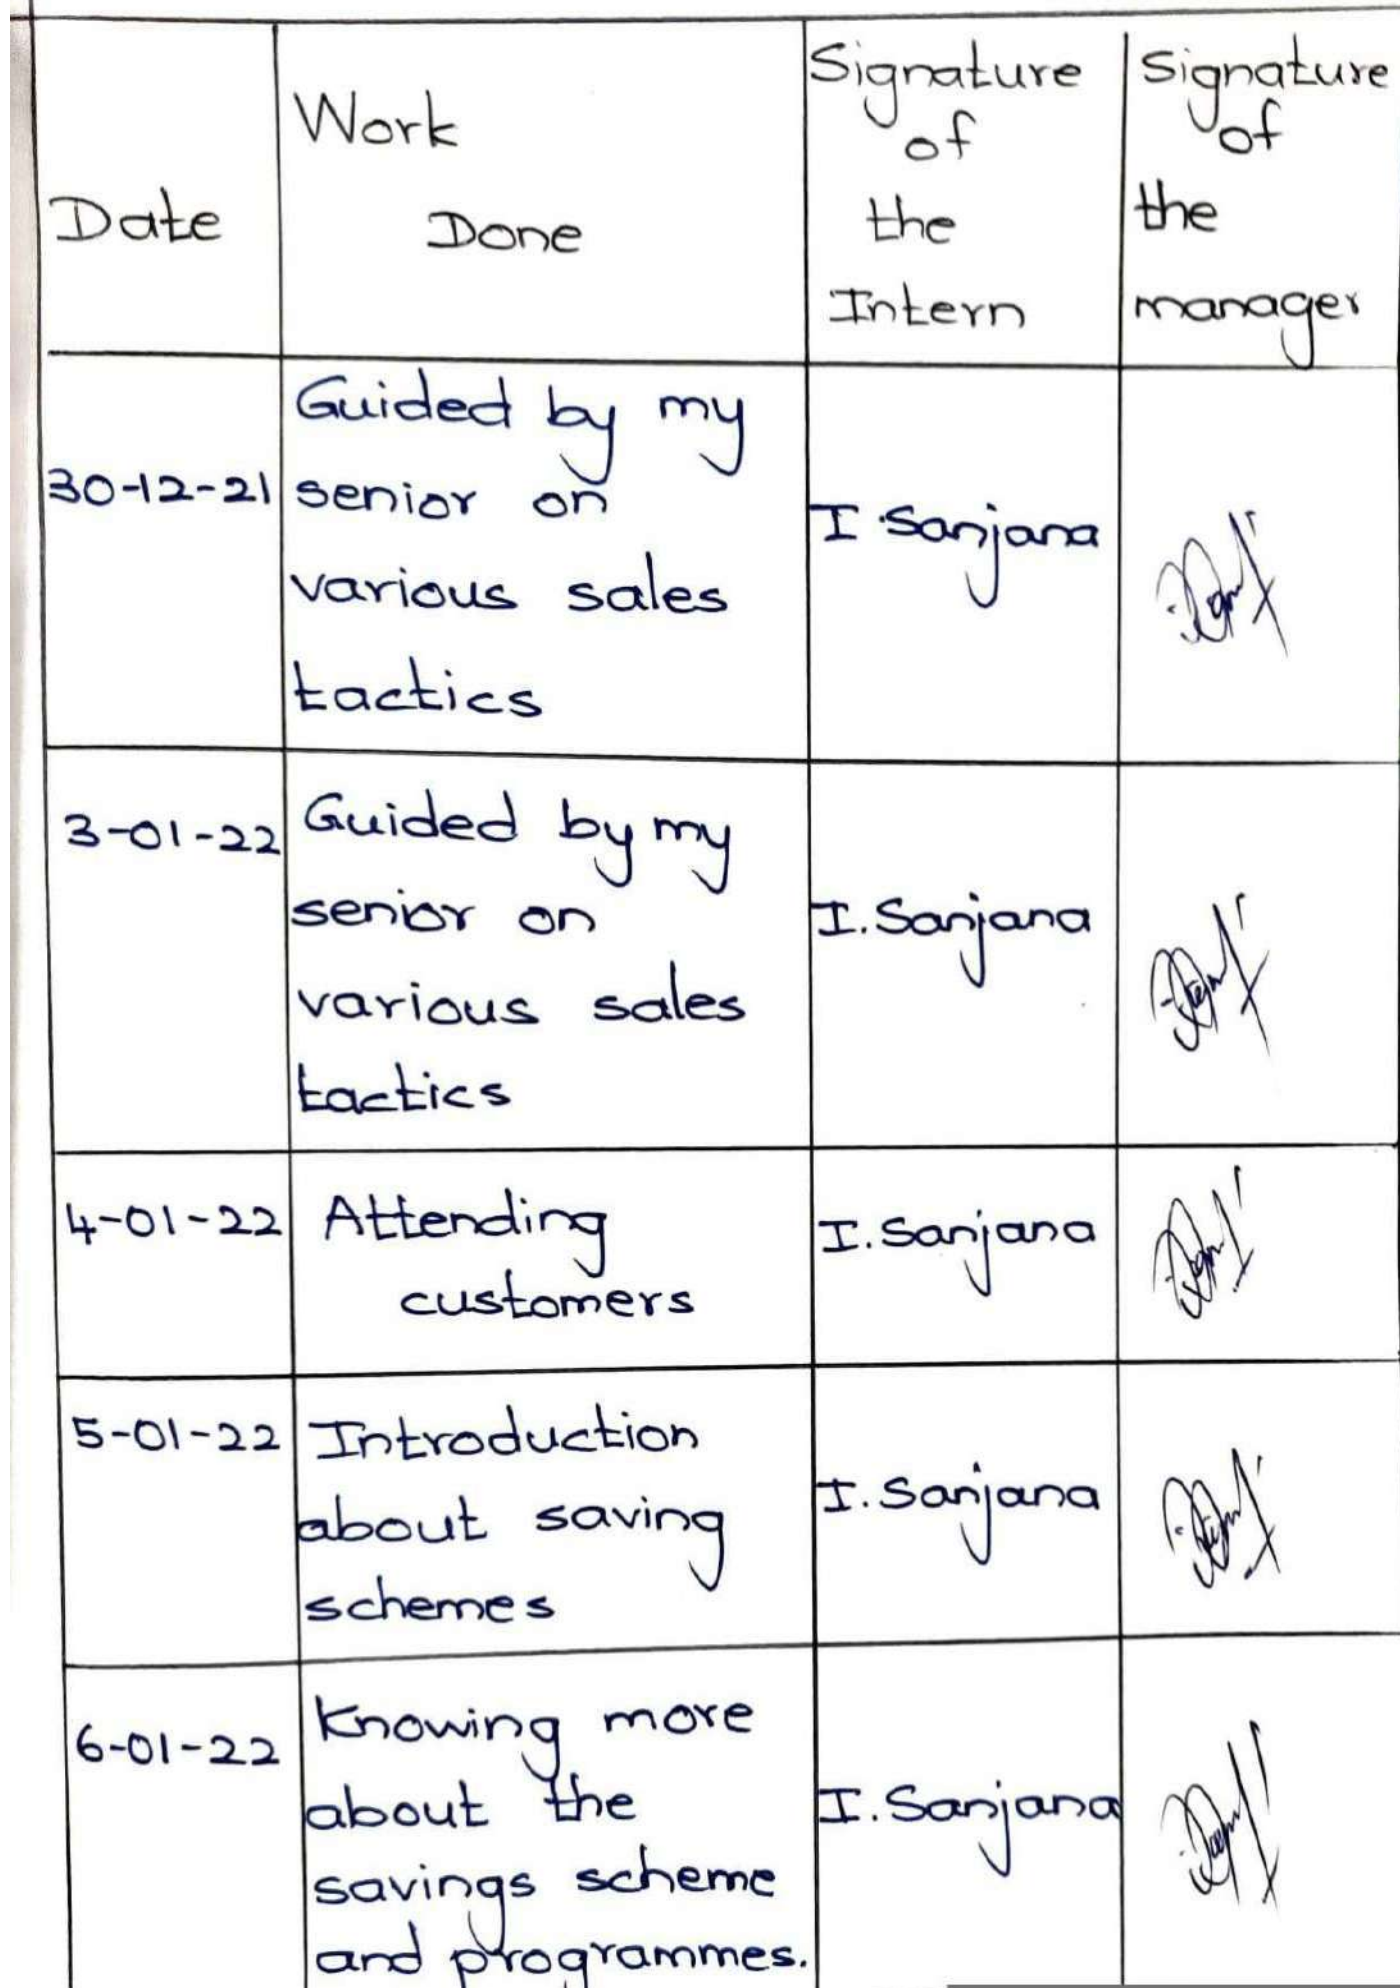 Date
Work
Done
Signature
of
the
Intern
Signature
of
the
manager
30-12-21
Guided by my
senior on
various sales
tactics
I. Sanjana
3-01-22
Guided by my
senior on
various sales
tactics
I. Sanjana
4-01-22
Attending
customers
I. Sanjana
5-01-22
Introduction
about saving
schemes
I. Sanjana
6-01-22
Knowing more
about the
savings scheme
and programmes.
I. Sanjana